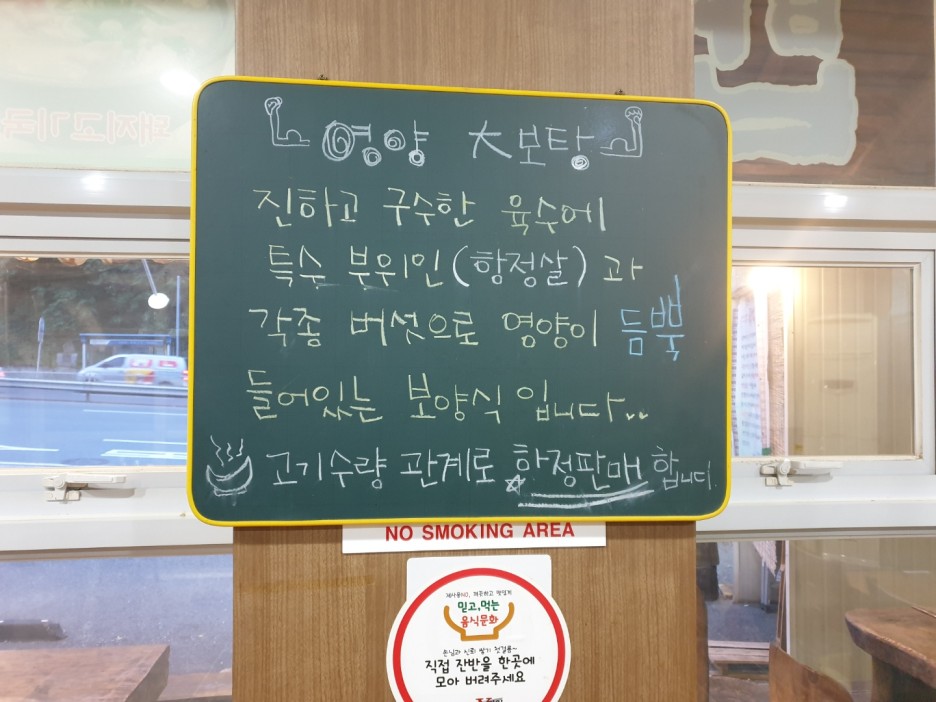 영양 大보탕
진하고 구수한 육수에
특수 부위인(항정살)과
각종 버섯으로 영양이 듬뿍
들어있는 보양식 입니다..
고기수량 관계로 한정판매 합니다.
NO SMOKING AREA
믿고, 먹는
음식문화
직접 잔반을 한곳에
모아 버려주세요